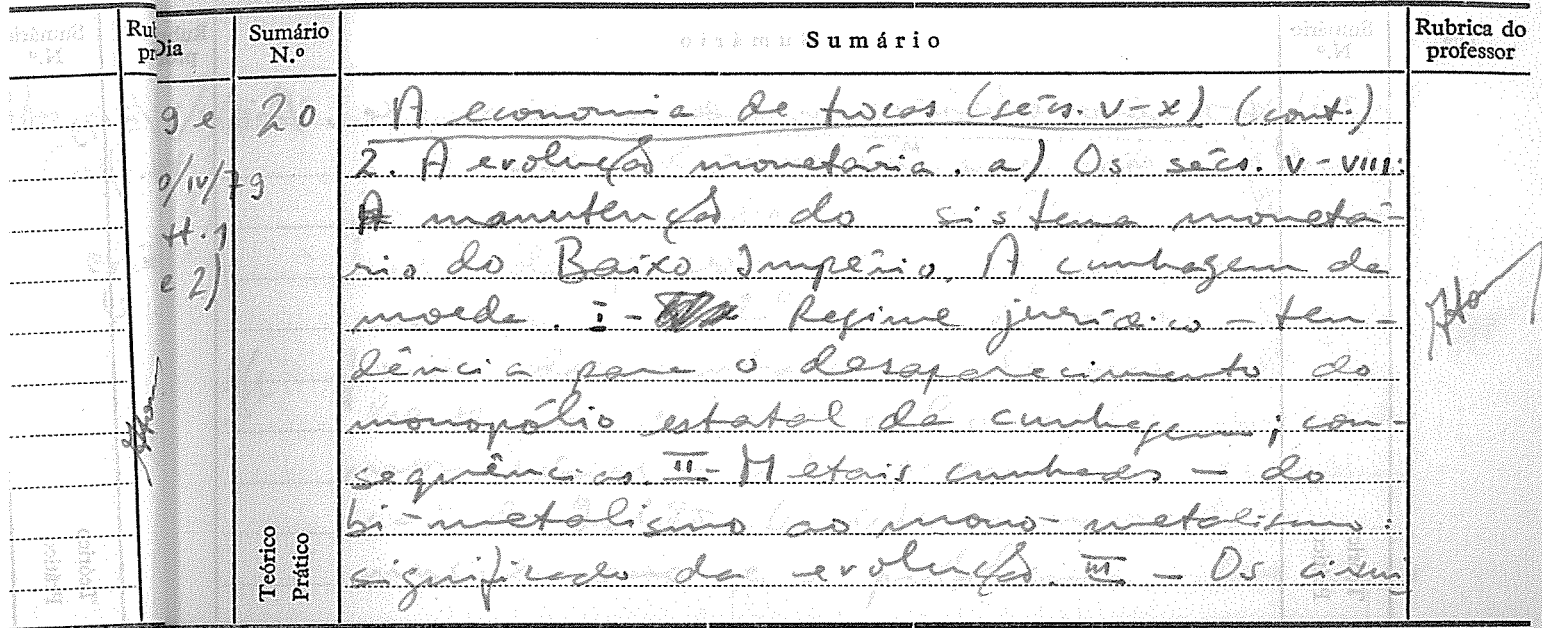 Dia
Sumário N.º
Sumário
Rubrica do professor
9 e
0/IV/79
H.1
e 2)
20
A economia de trocas (sécs. V-X) (cont.)
2. A evolução monetária. a) Os sécs. V-VIII:
A manutenção do sistema monetá-
rio do Baixo Império. A cunhagem da
moeda. I - Regime jurídico - ten-
dência para o desaparecimento do
monopólio estatal da cunhagem; con-
sequências. II - Metais cunhados - do
bi-metalismo ao mono-metalismo:
significado da evolução. III - Os
Teórico
Prático